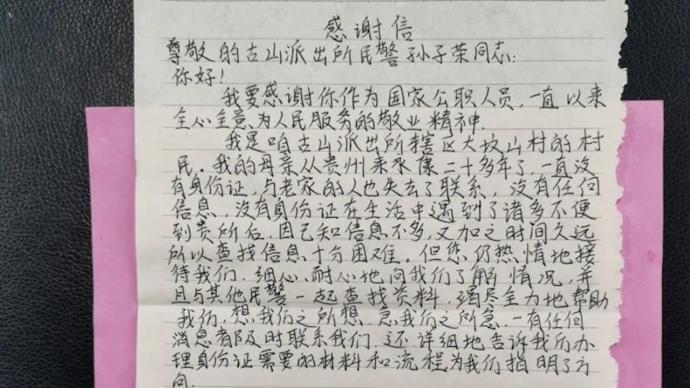 感谢信
尊敬的古山派出所民警孙子荣同志:
你好!
我要感谢你作为国家公职人员,一直以来
全心全意为人民服务的敬业精神.
我是咱古山派出所辖区大坟山村的村
民,我的母亲从贵州来永康二十多年了,一直没
有身份证,与老家的人也失去了联系,没有任何
信息,没有身份证在生活中遇到了诸多不便
到贵所后,因已知信息不多,又加之时间久远
所以查找信息十分困难.但您仍热情地接
待我们,细心、耐心地向我们了解情况,并
且与其他民警一起查找资料,竭尽全力地帮助
我们,想我们之所想,急我们之所急,一有任何
消息都及时联系我们,还详细地告诉我们办
理身份证需要的材料和流程为我们指明了方
向.